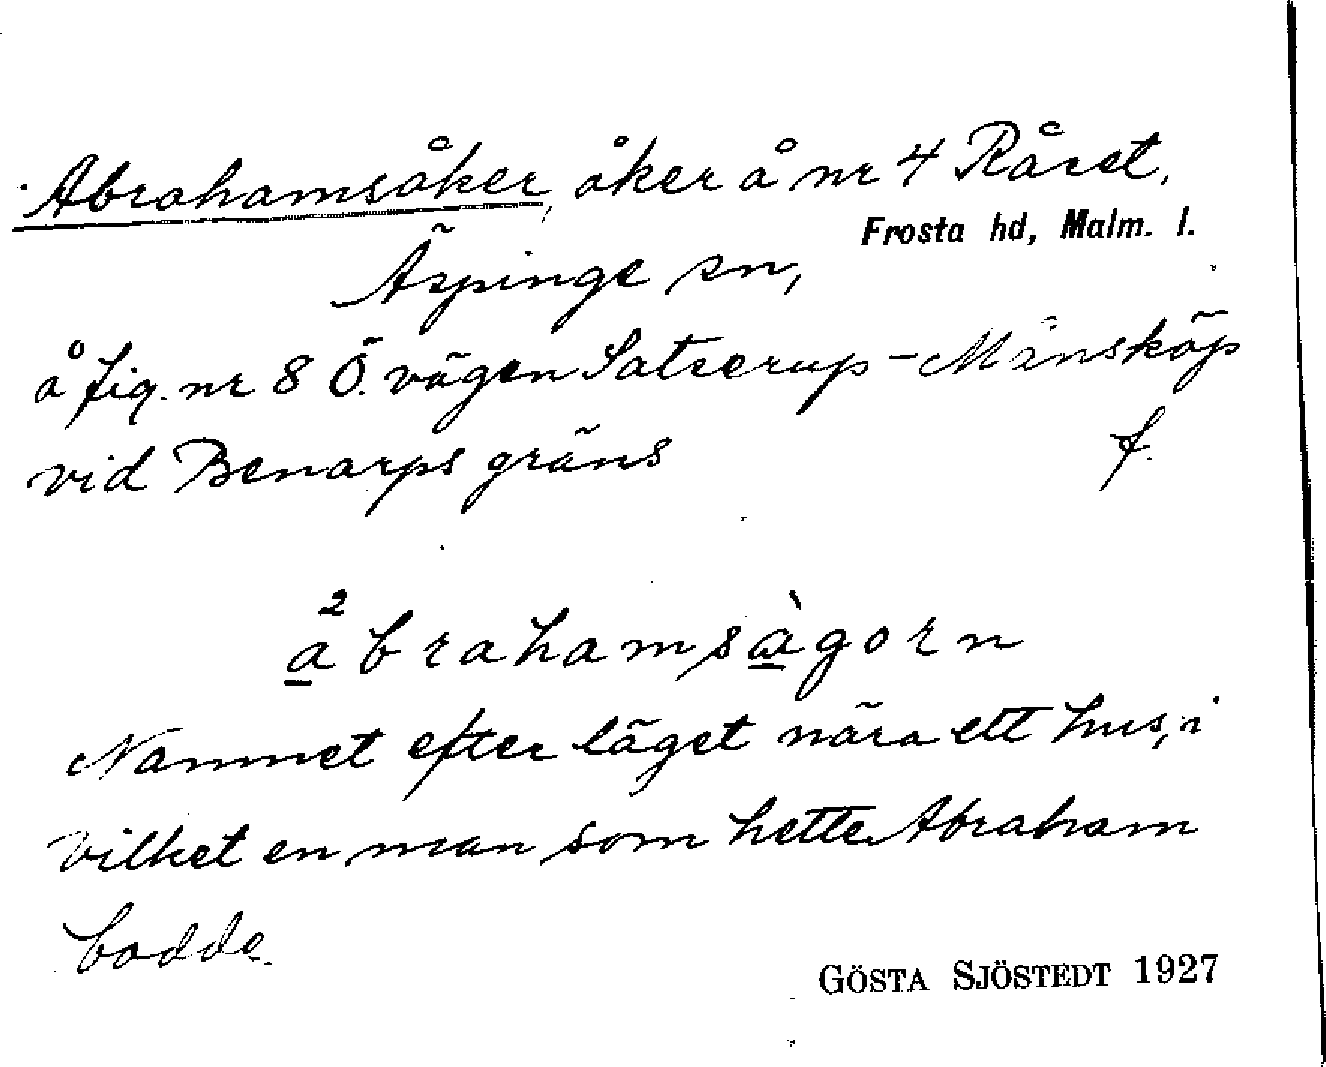 Abrahamsåker, åker å nr 4 Råret,
Frosta hd, Malm. l.
Äspinge sn,
å fig. nr 8 Ö. vägen Satserup - Månsköp
vid Benarps gräns f.
a²brahamsàgorn
Namnet efter läget nära ett hus, i
vilket en man som hette Abraham
bodde.
GÖSTA SJÖSTEDT 1927